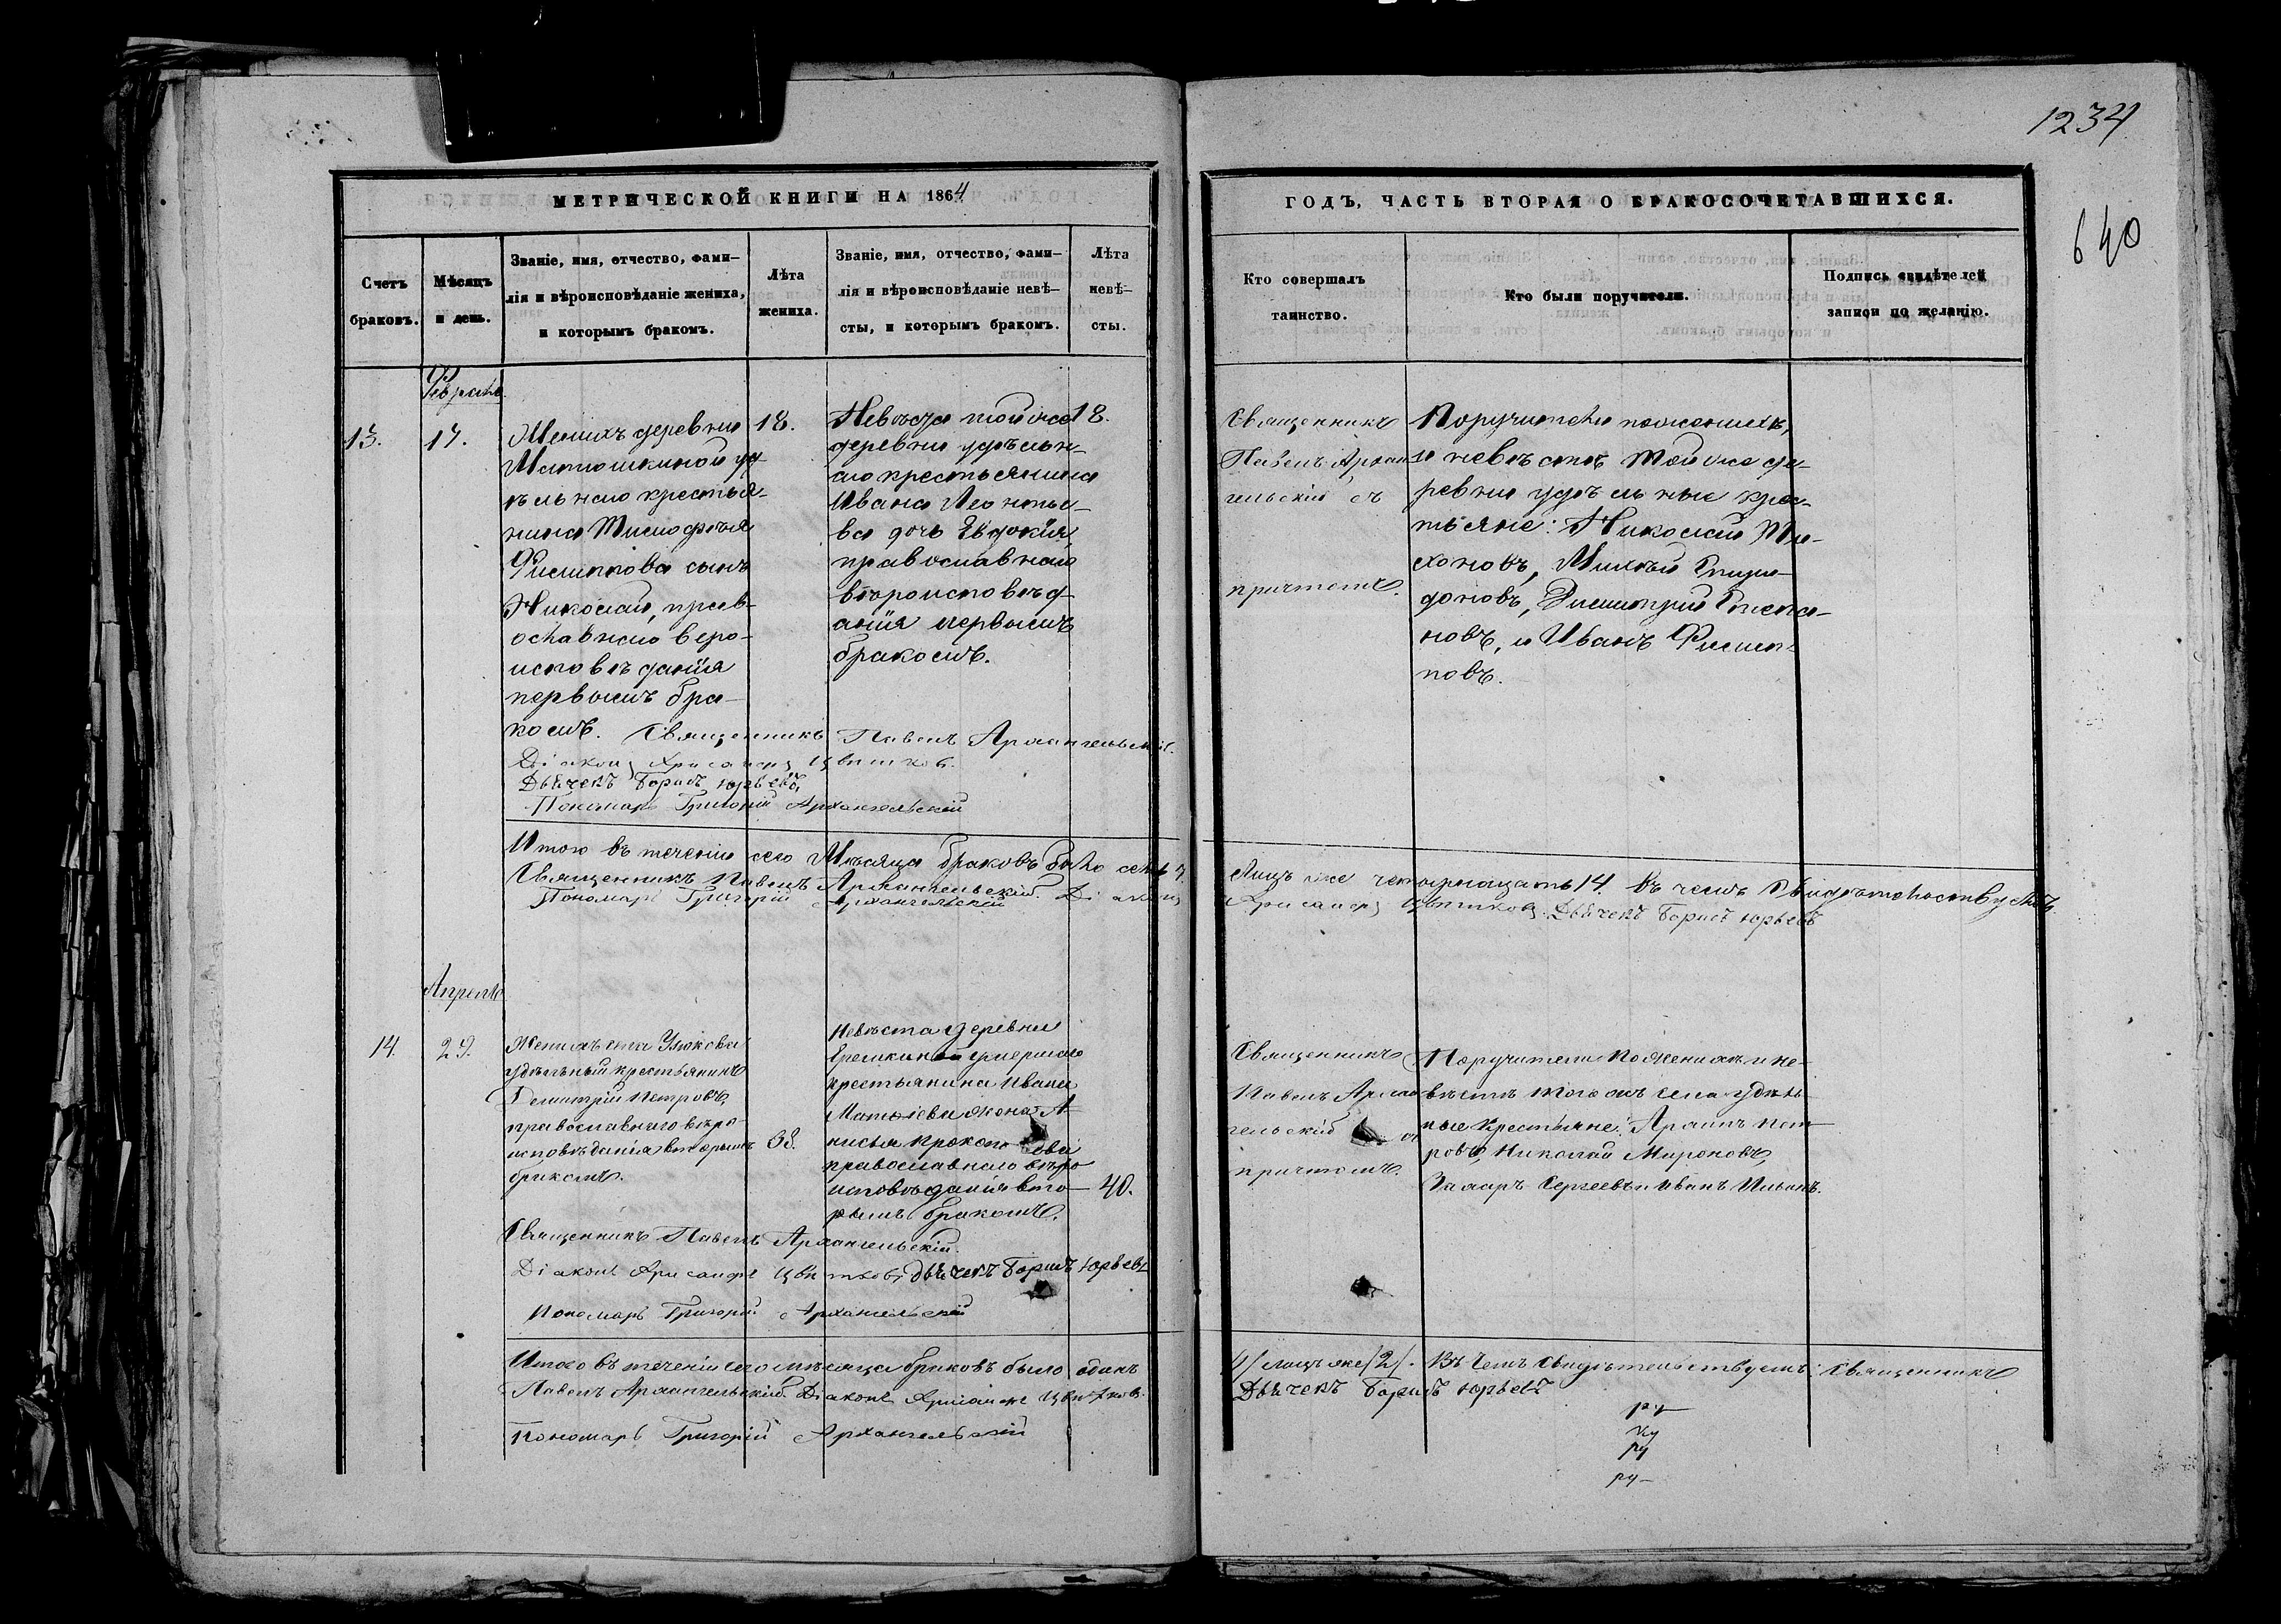 1234
640
МЕТРИЧЕСКОЙ КНИГИ НА 1864
ГОДЪ, ЧАСТЬ ВТОРАЯ О БРАКОСОЧЕТАВШИХСЯ.
Счетъ
браковъ.
Мѣсяцъ
и день.
Званіе, имя, отчество, фами-
лія и вѣроисповѣданіе жениха,
и которымъ бракомъ.
Лѣта
жениха.
Званіе, имя, отчество, фами-
лія и вѣроисповѣданіе невѣ-
сты, и которымъ бракомъ.
Лѣта
невѣ-
сты.
Кто совершалъ
таинство.
Кто были поручители.
Подпись свидѣтелей
записи по желанію.
Февраль
13.
17.
Женихъ деревни
Матюшкиной уд
ѣльнаго крестья-
нина Тимофѣя
Филиппова сынъ
Николай, прав-
ославнаго веро-
исповѣданія
первымъ бра-
комъ.
18.
Невѣста той же
деревни удѣльн-
аго крестьянина
Ивана Леонтье-
ва дочь Евдокія,
православнаго
вѣроисповѣд-
анія первымъ
бракомъ.
18.
Священникъ
Павелъ Архан
гельскій съ
причтомъ.
Поручители по женихѣ,
и невѣстѣ той же де-
ревни удѣльные крес-
тьяне: Николай Ти-
хоновъ, Михѣй Спири-
доновъ, Димитрій Степа-
новъ, и Иванъ Филип-
повъ.
Священникъ Павелъ Архангельскій.
Діаконъ Хрисанфъ Цвѣтковъ.
Дьячекъ Борисъ Юрьевъ
Пономарь Григорій Архангельскій
Итого въ теченіи сего Мѣсяца браковъ было семь 7.
Лицъ же четырнадцать 14. Въ чемъ Свидѣтельствуемъ
Священникъ Павелъ Архангельскій. Діаконъ
Хрисанфъ Цвѣтковъ. Дьячекъ Борисъ Юрьевъ
Пономарь Григорій Архангельскій
Апрель
14.
29.
Женихъ села
удѣльный крестьянинъ
Димитрій Петровъ,
православнаго вѣро-
исповѣданія вторымъ
бракомъ.
38.
Невѣста деревни
Еремкиной умершаго
крестьянина Ивана
жена А
нисья Прокопьева
православнаго вѣро
исповѣданія вто-
рымъ бракомъ.
40.
Священникъ
Павелъ Архан
гельскій съ
причтомъ.
Поручители по женихѣ и не-
вѣстѣ того жъ села удѣль
ные крестьяне: Архипъ Пет-
ровъ, Николай Мироновъ,
Захаръ Сергеевъ и Иванъ Ильинъ.
Священникъ Павелъ Архангельскій.
Діаконъ Хрисанфъ Цвѣтковъ, дьячекъ Борисъ Юрьевъ
Пономарь Григорій Архангельскій
Итого въ теченіи сего мѣсяца браковъ было одинъ
лицъ же /2/. Въ чемъ свидѣтельствуемъ: Священникъ
Павелъ Архангельскій. Діаконъ Хрисанфъ Цвѣтковъ.
Дьячекъ Борисъ Юрьевъ
Пономарь Григорій Архангельскій